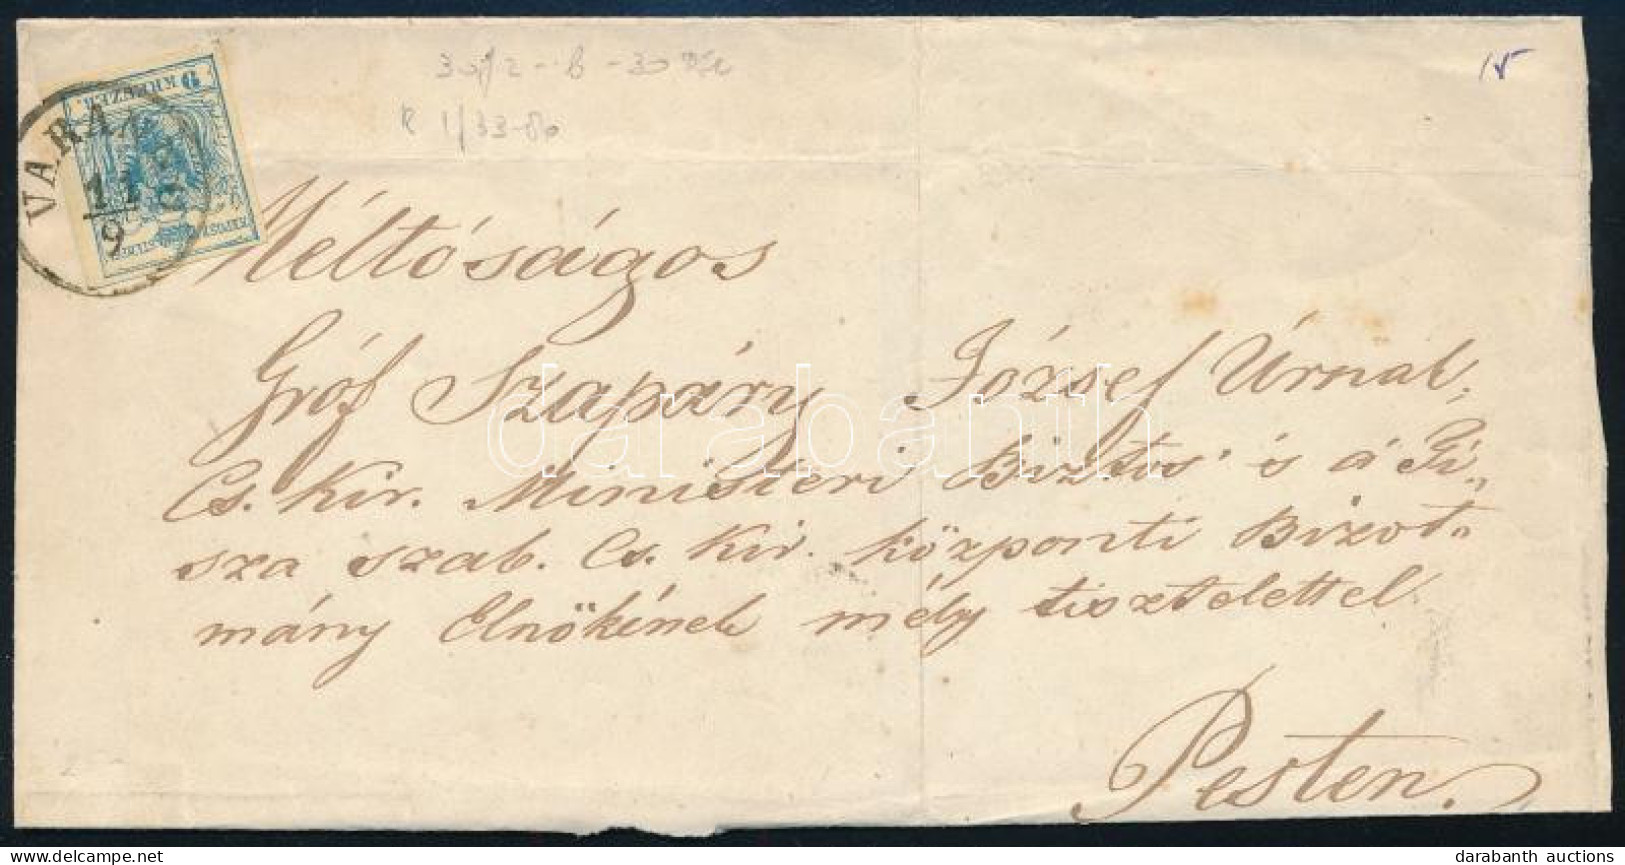 9 KREUZER
VARA
11
9
15
R 1/33-86
Méltóságos
Gróf Szapáry József Úrnak,
Cs. Kir. Ministeri Biztos és á Ti„
sza szab. Cs. Kir. központi Bizott„
mány Elnökének mély tisztelettel
Pesten.
darabanth
darabanth auctions